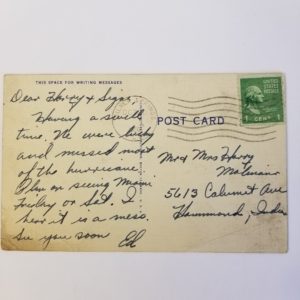 THIS SPACE FOR WRITING MESSAGES
Dear Harry & Signe,
Having a swell
time. We were lucky
and missed most
of the hurricane.
Plan on seeing Miami
Friday or Sat. I
hear it is a mess.
See you soon
Ed
POST CARD
UNITED STATES
POSTAGE
1 CENT 1
Mr & Mrs Harry
5613 Calumet Ave
Hammond, Indiana